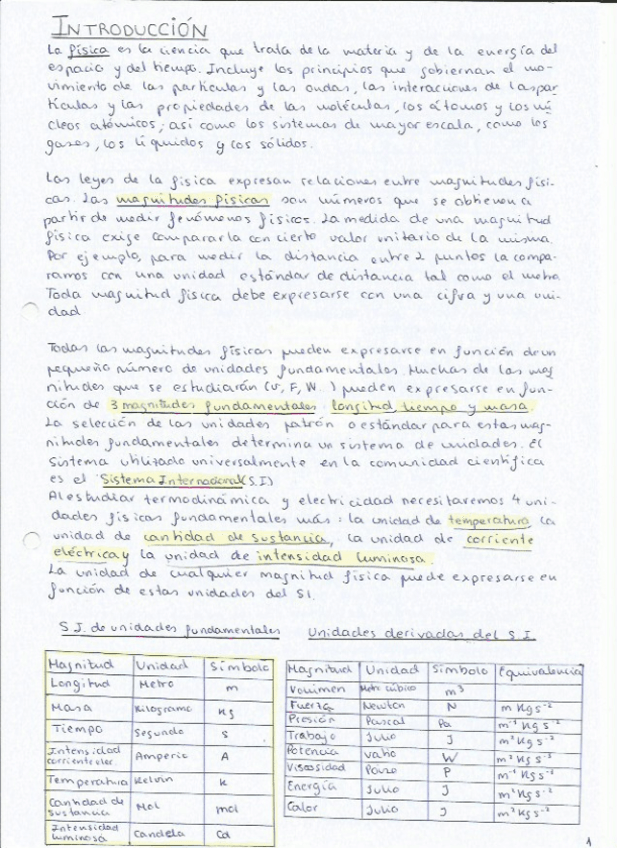 INTRODUCCIÓN
La física es la ciencia que trata de la materia y de la energía del
espacio y del tiempo. Incluye los principios que gobiernan el mo-
vimiento de las partículas y las ondas, las interacciones de las par
tículas y las propiedades de las moléculas, los átomos y los nú
cleos atómicos; así como los sistemas de mayor escala, como los
gases, los líquidos y los sólidos.
Las leyes de la física expresan relaciones entre magnitudes físi-
cas. Las magnitudes físicas son números que se obtienen a
partir de medir fenómenos físicos. La medida de una magnitud
física exige compararla con cierto valor unitario de la misma.
Por ejemplo, para medir la distancia entre 2 puntos la compa-
ramos con una unidad estándar de distancia tal como el metro
Toda magnitud física debe expresarse con una cifra y una uni-
dad
Todas las magnitudes físicas pueden expresarse en función de un
pequeño número de unidades fundamentales. Muchas de las mag
nitudes que se estudiarán (v, F, W..) pueden expresarse en fun-
ción de 3 magnitudes fundamentales: longitud, tiempo y masa.
La selección de las unidades patrón o estándar para estas mag-
nitudes fundamentales determina un sistema de unidades. El
sistema utilizado universalmente en la comunidad científica
es el Sistema Internacional (S.I)
Al estudiar termodinámica y electricidad necesitaremos 4 uni-
dades físicas fundamentales más: la unidad de temperatura, la
unidad de cantidad de sustancia, la unidad de corriente
eléctrica y la unidad de intensidad luminosa.
La unidad de cualquier magnitud física puede expresarse en
función de estas unidades del SI.
S.I. de unidades fundamentales Unidades derivadas del S.I
Magnitud Unidad Símbolo
Longitud Metro m
Masa Kilogramo Kg
Tiempo Segundo s
Intensidad corriente elec. Amperio A
Temperatura Kelvin k
Cantidad de sustancia Mol mol
Intensidad luminosa Candela Cd
Magnitud Unidad Símbolo Equivalencia
Volumen Metro cúbico m³
Fuerza Newton N m Kg s⁻²
Presión Pascal Pa m⁻¹ Kg s⁻²
Trabajo Julio J m² Kg s⁻²
Potencia Vatio W m² Kg s⁻³
Viscosidad Poise P m⁻¹ Kg s⁻¹
Energía Julio J m² Kg s⁻²
Calor Julio J m² Kg s⁻²
1